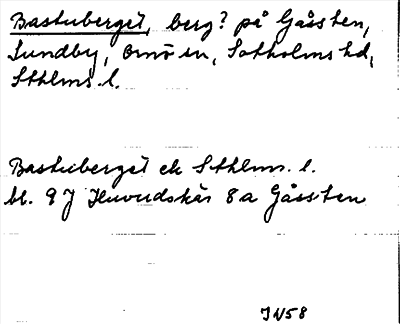 Bastuberget, berg? på Gåssten,
Sundby, Ornö sn, Sotholms hd,
Sthlms l.
Bastuberget ek Sthlms. l.
bl. 9 J Huvudskär 8 a Gåssten
JN58